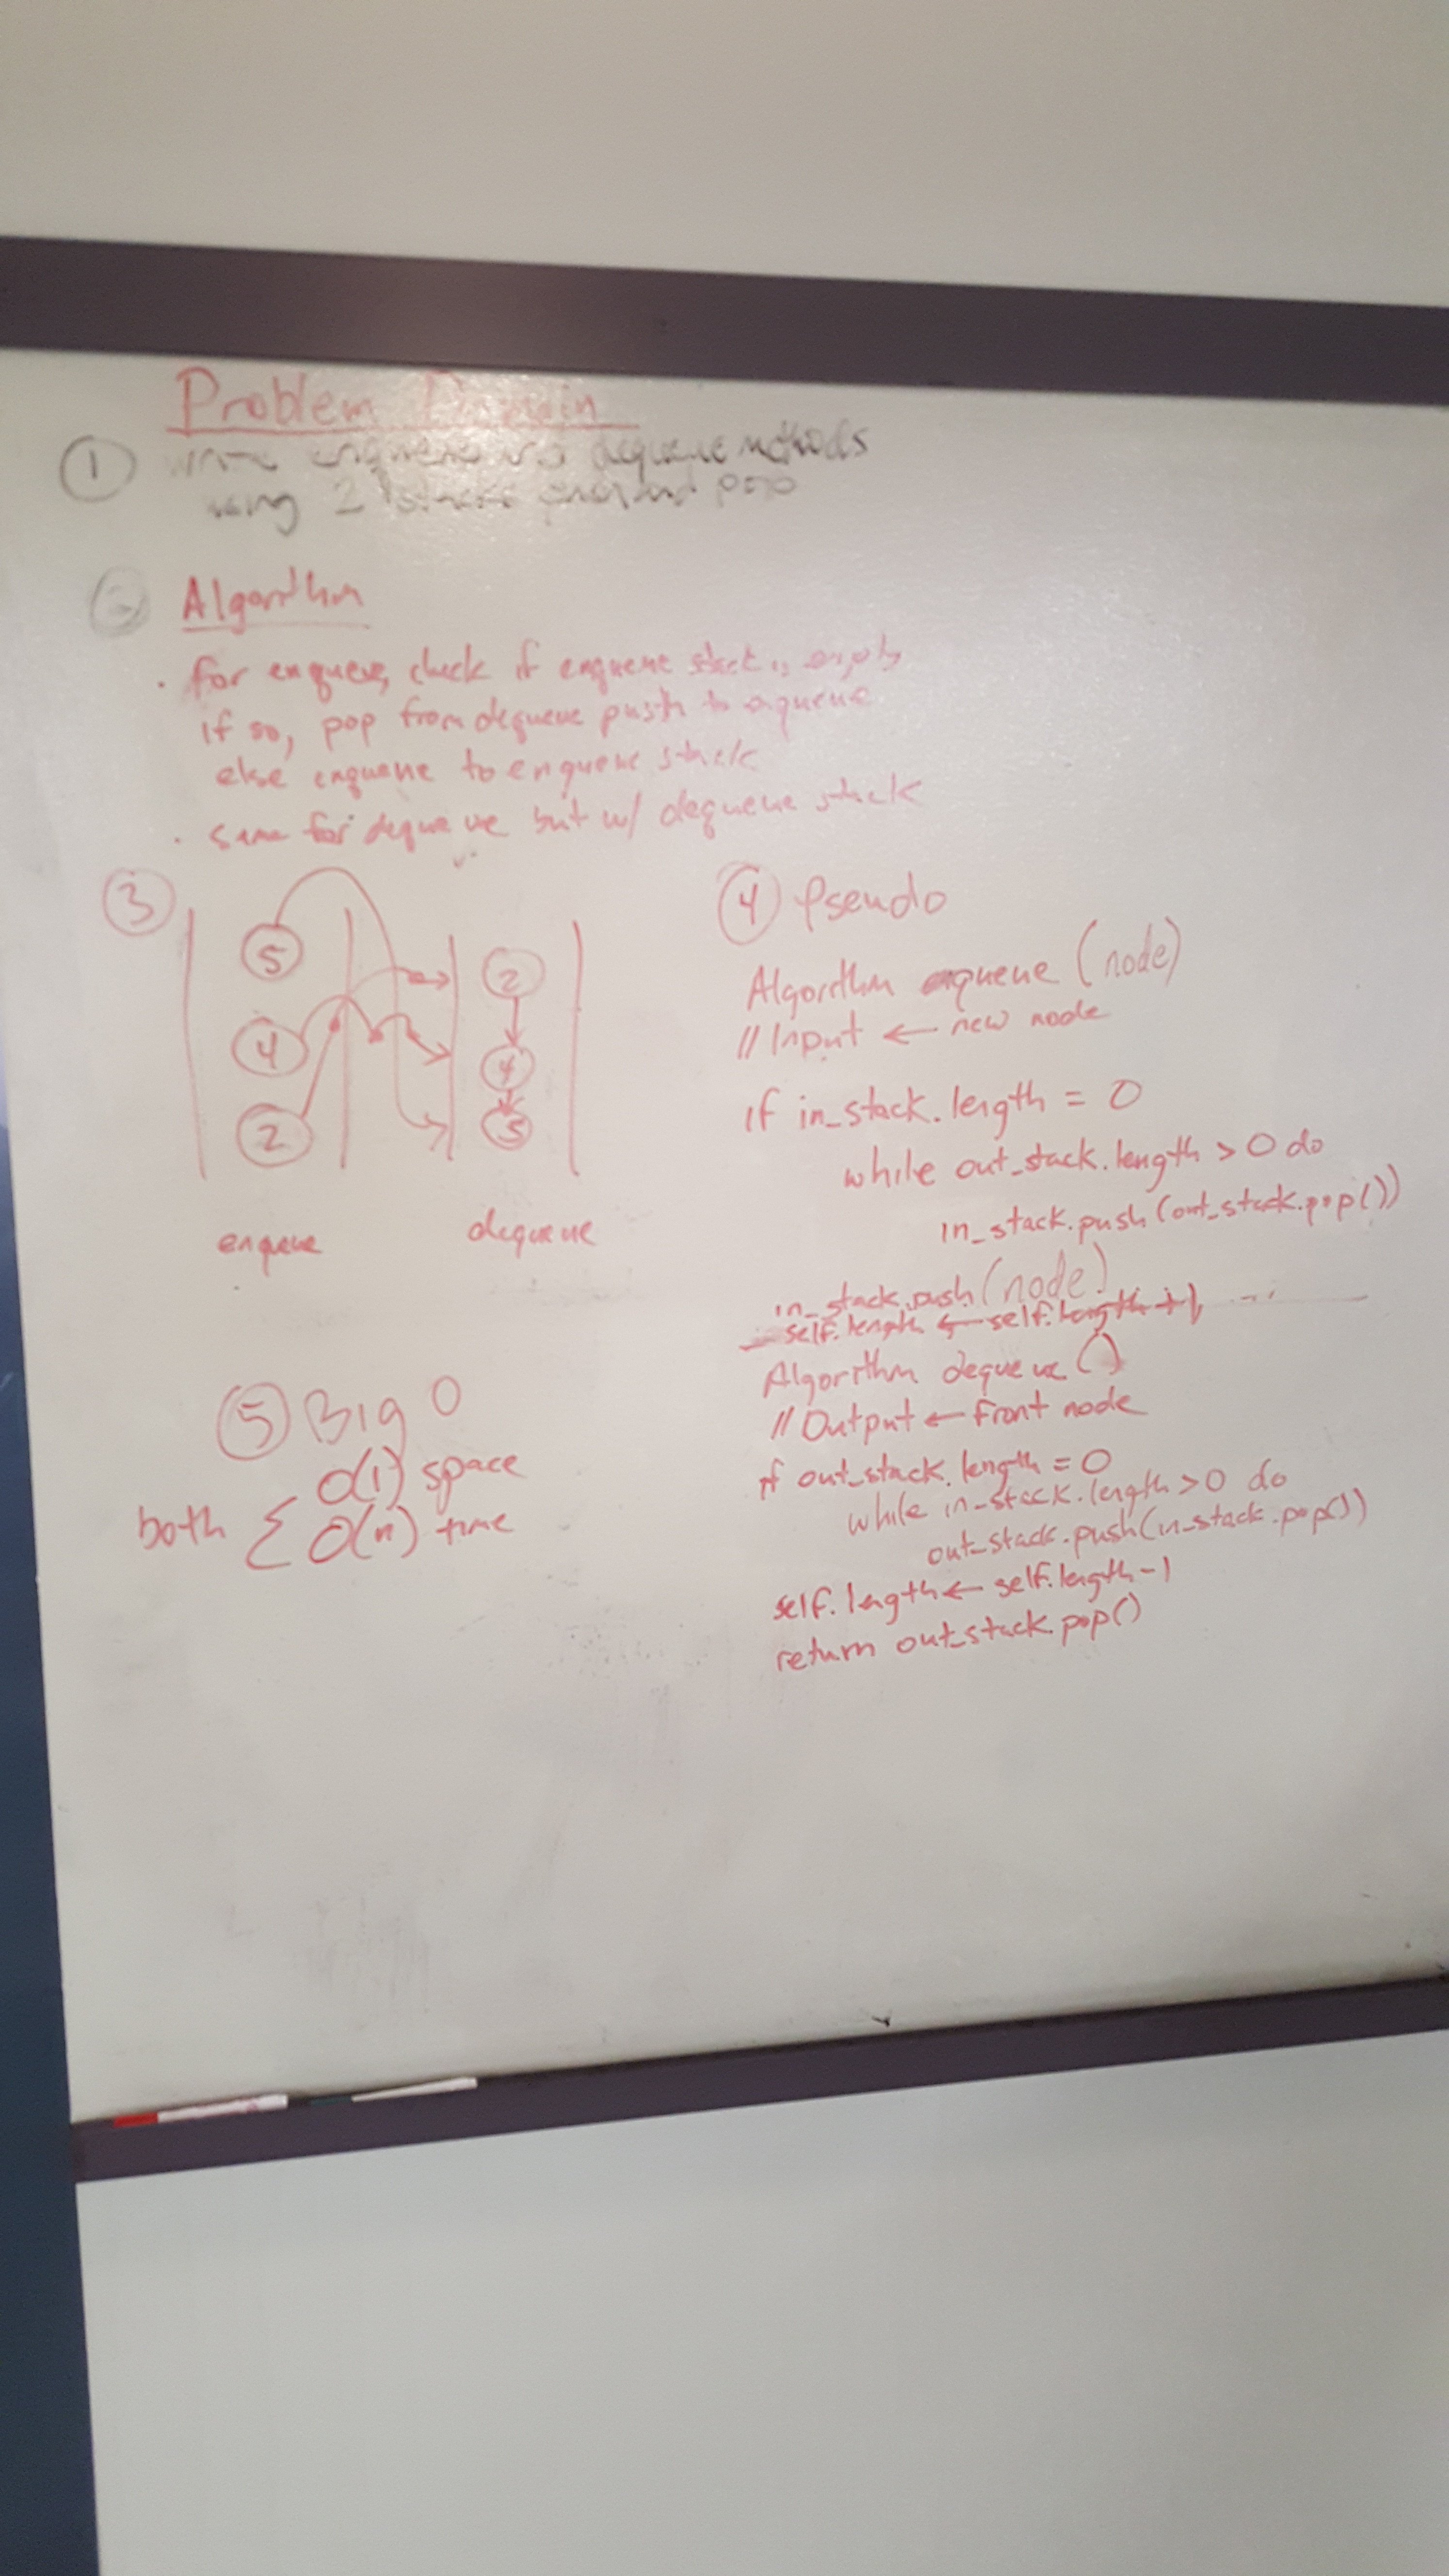 Problem Domain
① write enqueue and dequeue methods
using 2 stacks push and pop
② Algorithm
· for enqueue, check if enqueue stack is empty
if so, pop from dequeue push to enqueue
else enqueue to enqueue stack
· same for dequeue but w/ dequeue stack
③
5
4
2
2
4
5
enqueue
dequeue
④ Pseudo
Algorithm enqueue (node)
// Input ← new node
if in_stack.length = 0
while out_stack.length > 0 do
in_stack.push(out_stack.pop())
in_stack.push(node)
self.length ← self.length + 1
Algorithm dequeue ()
// Output ← front node
if out_stack.length = 0
while in_stack.length > 0 do
out_stack.push(in_stack.pop())
self.length ← self.length - 1
return out_stack.pop()
⑤ Big O
both { O(1) space
O(n) time